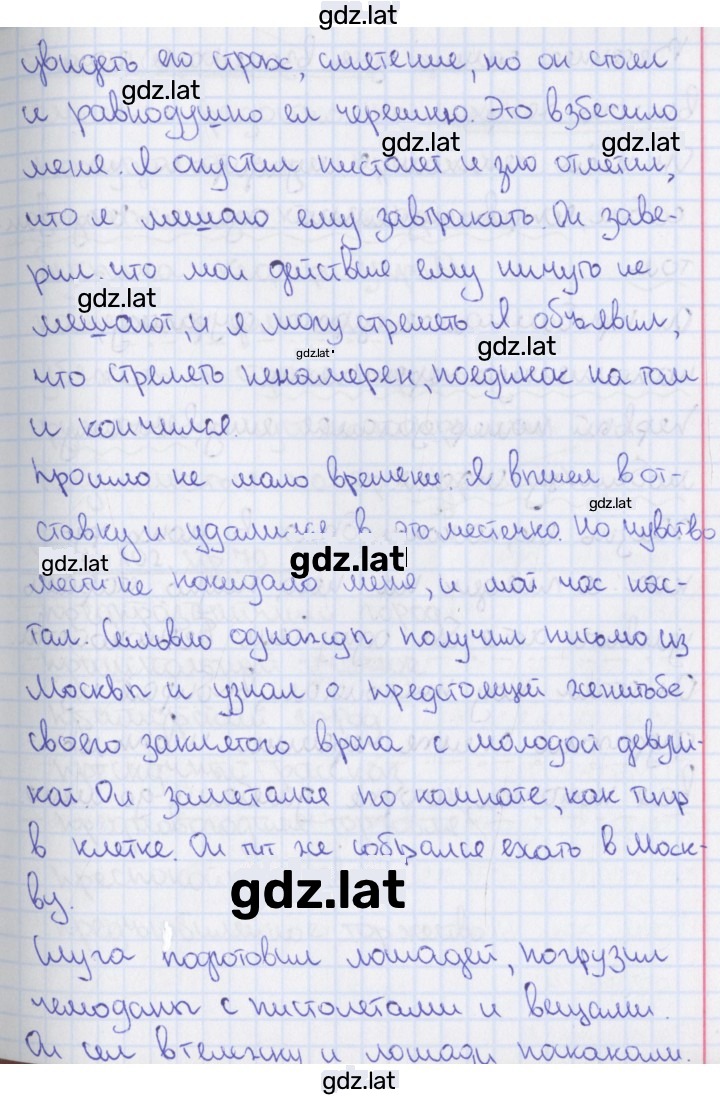 gdz.lat
увидеть его страх, смятение, но он стоял
gdz.lat
и равнодушно ел черешню. Это взбесило
gdz.lat gdz.lat
меня. Я опустил пистолет и зло отметил,
что я мешаю ему завтракать. Он заве-
рил что мои действие ему ничуть не
gdz.lat
мешают, и я могу стрелять Я объявил,
gdz.lat gdz.lat
что стрелять ненамерен, поединок на том
и кончился.
Прошло не мало времени. Я вышел в от-
gdz.lat
ставку и удалился в это местечко. Но чувство
gdz.lat gdz.lat
мести не покидало меня, и мой час нас-
тал. Сильвио однажды получил письмо из
Москвы и узнал о предстоящей женитьбе
своего заклятого врага с молодой девуш-
кой Он заметался по комнате, как тигр
в клетке. Он тут же собрался ехать в Моск-
gdz.lat
ву.
Слуга подготовил лошадей, погрузил
чемоданы с пистолетами и вещами.
Он сел в тележку и лошади поскакали.
gdz.lat